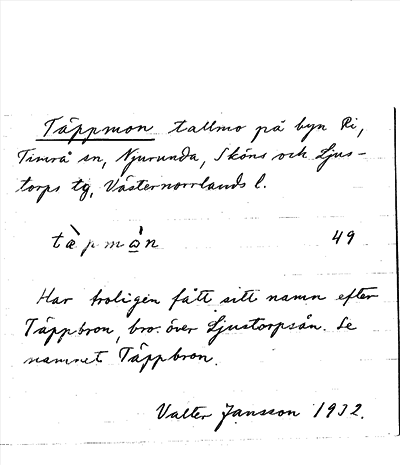 Täppmon tallmo på byn Ri,
Timrå sn, Njurunda, Sköns och Ljus-
torps tg, Västernorrlands l.
tæ̀pmòn 49
Har troligen fått sitt namn efter
Täppbron, bro över Ljustorpsån. Se
namnet Täppbron.
Valter Jansson 1932.